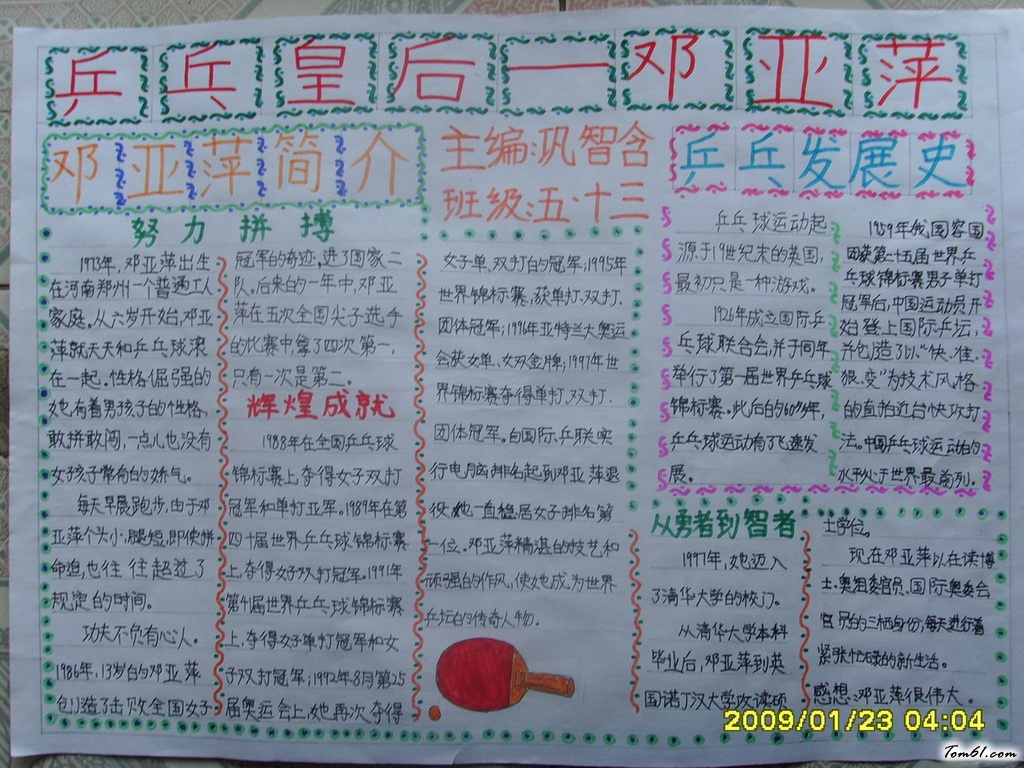 乒乓皇后—邓亚萍
邓亚萍简介
主编:巩智含
班级:五·十三
努力拼搏
1973年,邓亚萍出生
在河南郑州一个普通工人
家庭。从六岁开始,邓亚
萍就天天和乒乓球滚
在一起。性格倔强的
她有着男孩子的性格,
敢拼敢闯,一点儿也没有
女孩子常有的娇气。
每天早晨跑步,由于邓
亚萍个头小,腿短,即使拼
命追,也往往超过了
规定的时间。
功夫不负有心人。
1986年,13岁的邓亚萍
创造了击败全国女子
冠军的奇迹,进了国家二
队。后来的一年中,邓亚
萍在五次全国尖子选手
的比赛中拿了四次第一,
只有一次是第二。
辉煌成就
1988年在全国乒乓球
锦标赛上夺得女子双打
冠军和单打亚军。1989年在第
四十届世界乒乓球锦标赛
上,夺得女子双打冠军。1991年
第41届世界乒乓球锦标赛
上,夺得女子单打冠军和女
子双打冠军;1992年8月第25
届奥运会上,她再次夺得
女子单、双打的冠军;1995年
世界锦标赛,获单打、双打、
团体冠军;1996年亚特兰大奥运
会获女单、女双金牌;1997年世
界锦标赛夺得单打、双打、
团体冠军。自国际乒联实
行电脑排名起到邓亚萍退
役,她一直稳居女子排名第
一位。邓亚萍精湛的技艺和
顽强的作风,使她成为世界
乒坛的传奇人物。
乒乓发展史
乒乓球运动起
源于19世纪末的英国,
最初只是一种游戏。
1926年成立国际乒
乓球联合会,并于同年
举行了第一届世界乒乓球
锦标赛。此后的60多年,
乒乓球运动有了飞速发
展。
1959年我国容国
团获第二十五届世界乒
乓球锦标赛男子单打
冠军后,中国运动员开
始登上国际乒坛,
并创造了以"快、准、
狠、变"为技术风格
的直拍近台快攻打
法。中国乒乓球运动的
水平处于世界最前列。
从勇者到智者
1997年,她迈入
了清华大学的校门。
从清华大学本科
毕业后,邓亚萍到英
国诺丁汉大学攻读硕
士学位。
现在邓亚萍以在读博
士、奥组委官员、国际奥委会
官员的三栖身份,每天进行着
紧张忙碌的新生活。
感想:邓亚萍很伟大。
2009/01/23 04:04
Tom61.com